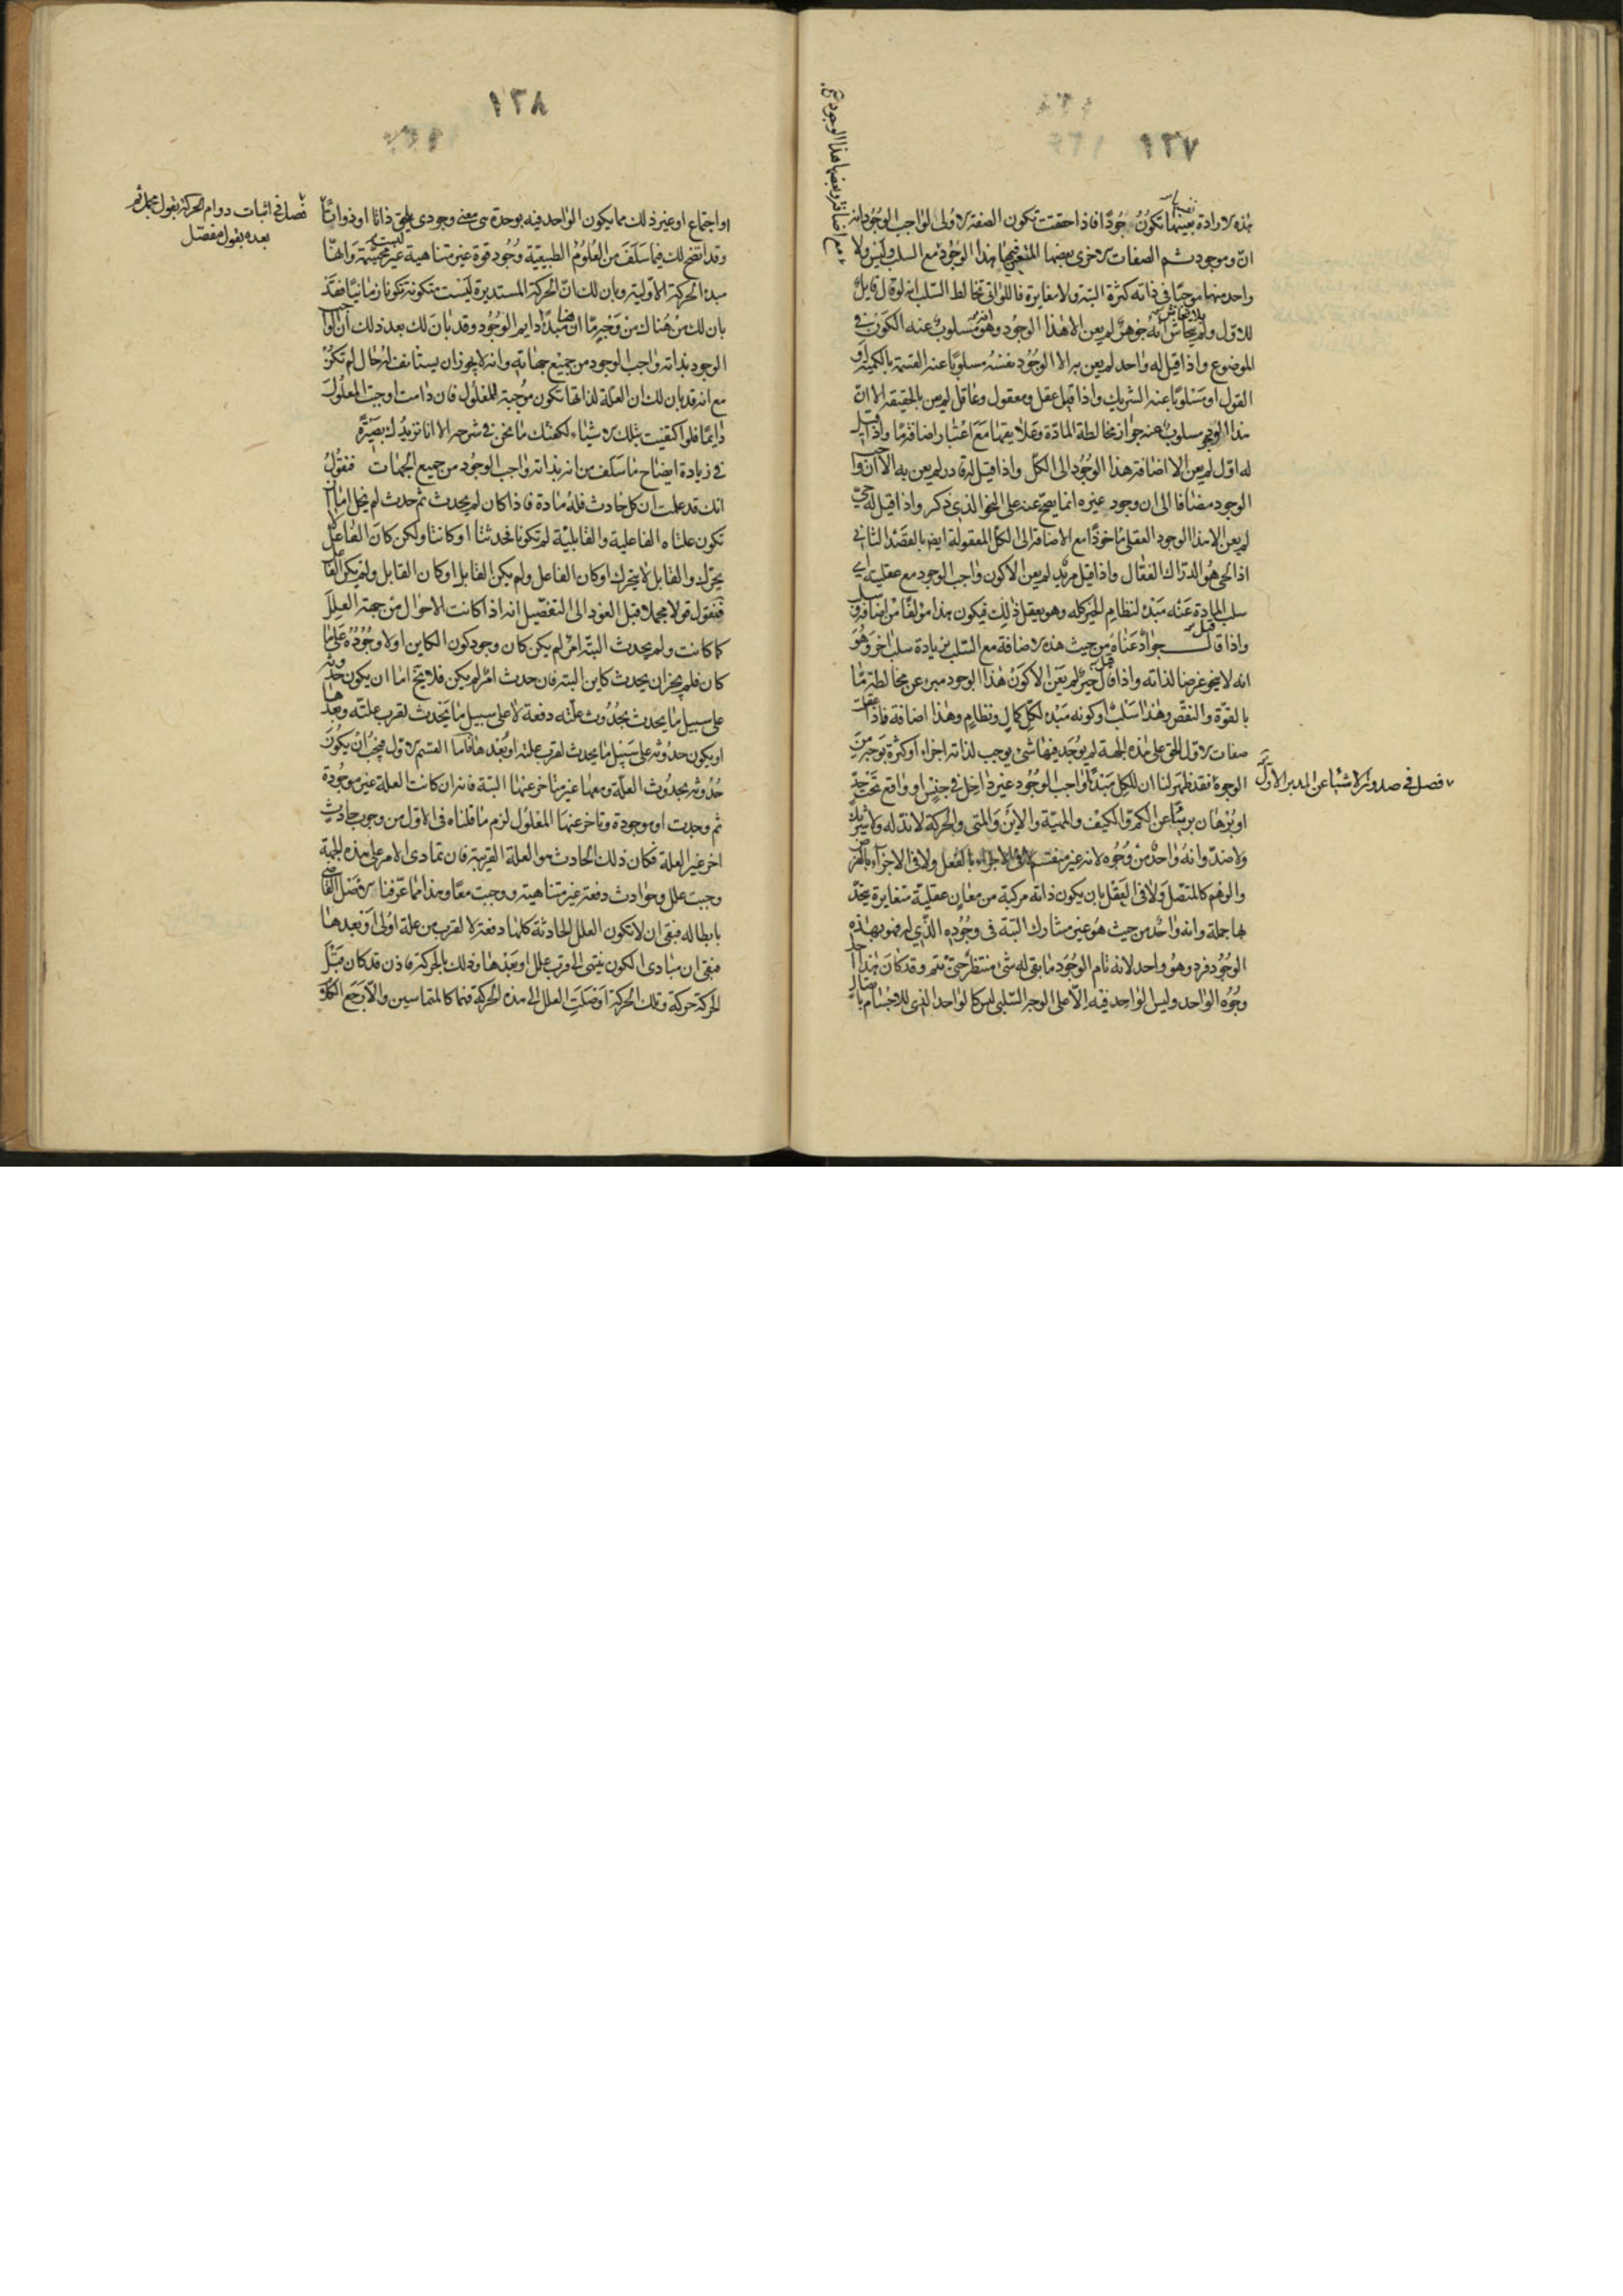 ١٣٧
هذه الارادة بعينها تكون جودا فاذا حققت تكون الصفة الاولى لواجب الوجود انه
انّ وموجود ثم الصفات الاخرى بعضها المتعين فيها هذا الوجود مع السلب وليس ولا
واحد منها موجبا في ذاته كثرة البتة ولا مغايرة فاللواتي تخالط السلب انه لو قال قايل
للاول ولم يتحاش انه جوهر لم يعن الا هذا الوجود وهو مسلوب عنه الكون في
الموضوع واذا قيل له واحد لم يعن به الا الوجود نفسه مسلوبا عنه القسمة بالكمية او
القول او مسلوبا عنه الشريك واذا قيل عقل ومعقول وعاقل لم يعن بالحقيقة الا انّ
هذا الوجود مسلوب عنه جواز مخالطة المادة وعلايقها مع اعتبار اضافة ما واذا قيل
له اول لم يعن الا اضافة هذا الوجود الى الكل واذا قيل له قادر لم يعن به الا انه وا
الوجود مضافا الى ان وجود غيره انما يصح عنه على النحو الذي ذكر واذا قيل له حيّ
لم يعن الا هذا الوجود العقلي ماخوذا مع الاضافة الى الكل المعقولة ايضا بالقصد الثاني
اذ الحي هو الدراك الفعّال واذا قيل مريد لم يعن الا كون واجب الوجود مع عقليته اي
سلب المادة عنه مبدأ لنظام الخير كله وهو يعقل ذلك فيكون هذا مؤلفا من اضافة وسلب
واذا قال جواد عناه من حيث هذه الاضافة مع السلب بزيادة سلب اخر وهو
انه لا ينحو غرضا لذاته واذا قيل خير لم يعن الا كون هذا الوجود مبرء عن مخالطة ما
بالقوة والنقص وهذا سلب او كونه مبدء لكل كمال ونظام وهذا اضافة فاذا عقلت
صفات الاول الحق على هذه الجهة لم يوجد فيها شيء يوجب لذاته اجزاء او كثرة بوجه من
الوجوه فقد ظهر لنا ان للكل مبدأ واجب الوجود غير داخل في جنس او واقع تحت حد
او برهان بريئا عن الكم والكيف والمهية والاين والمتى والحركة لا ند له ولا شريك
ولا ضد وانه واحد من وجوه لانه غير منقسم لا في الاجزاء بالفعل ولا في الاجزاء بالفرض
والوهم كالمتصل ولا في العقل بان يكون ذاته مركبة من معان عقلية متغايرة يتحد
بها جملة وانه واحد من حيث هو غير مشارك البتة في وجوده الذي له فهو بهذه
الوجود فرد وهو واحد لانه تام الوجود ما بقي له شيء منتظر حتى يتم وقد كان هذا احد
وجوه الواحد وليس الواحد فيه الا على الوجه السلبي ليس كالواحد الذي للاجسام باتصال
فصل في صدور الاشيا عن المدبر الاول
١٣٨
او اجتماع او غير ذلك مما يكون الواحد فيه بوحدة هي معنى وجودي يلحق ذاتا او ذواتا
وقد اتضح لك فيما سلف من العلوم الطبيعية وجود قوة غير متناهية ليست مجسمة وانها
مبدء الحركة الاولية وبان لك ان الحركة المستديرة ليست متكونة تكونا زمانيا فقد
بان لك من هناك من وجه ما ان هنا مبدأ دايم الوجود وقد بان لك بعد ذلك ان الواجب
الوجود بذاته واجب الوجود من جميع جهاته وانه لا يجوز ان يستانف له حال لم تكن
مع انه قد بان لك ان العلة لذاتها تكون موجبة المعلول فان دامت اوجبت المعلول
دايما فلو اكتفيت بتلك الاشياء لكفتك ما نحن في شرحه الا انا نزيدك بصيرة
في زيادة ايضاح ما سلف من انه بذاته واجب الوجود من جميع الجهات فنقول
انك قد علمت ان كل حادث فله مادة فاذا كان لم يحدث ثم حدث لم يخل اما ان
تكون علتاه الفاعلية والقابلية لم تكونا فحدثتا او كانتا ولكن كان الفاعل لا
يحرك والقابل لا يتحرك او كان الفاعل ولم يكن القابل او كان القابل ولم يكن الفاعل
فنقول قولا مجملا قبل العود الى التفصيل انه اذا كانت الاحوال من جهة العلل
كما كانت ولم يحدث البتة امر لم يكن كان وجود كون الكاين او لا وجوده على ما
كان فلم يجز ان يحدث كاين البتة فان حدث امر لم يكن فلا يخ اما ان يكون حدوثه
على سبيل ما يحدث بحدوث علته دفعة لا على سبيل ما يحدث لقرب علته وبعدها
او يكون حدوثه على سبيل ما يحدث لقرب علته او بعدها فاما القسم الاول فيجب ان يكون
حدوثه بحدوث العلة ومعها غير متاخر عنها البتة فانه ان كانت العلة غير موجودة
ثم وجدت او موجودة وتاخر عنها المعلول لزم ما قلناه في الاول من وجوب حادث
اخر غير العلة فكان ذلك الحادث هو العلة القريبة فان تمادى الامر على هذه الجهة
وجبت علل وحوادث دفعة غير متناهية ووجبت معا وهذا مما عرفنا الاصل القاضي
بابطاله فبقي ان لا تكون العلل الحادثة كلها دفعة لا لقرب من علة اولى او بعدها
فبقي ان مبادي الكون تنتهي الى قرب علل او بعدها وذلك بالحركة فاذن قد كان قبل
الحركة حركة وتلك الحركة اوصلت العلل الى هذه الحركة فهما كالمتماسين والا رجع الكلام
فصل في اثبات دوام الحركة بقول مجمل ثم
بعده بقول مفصل